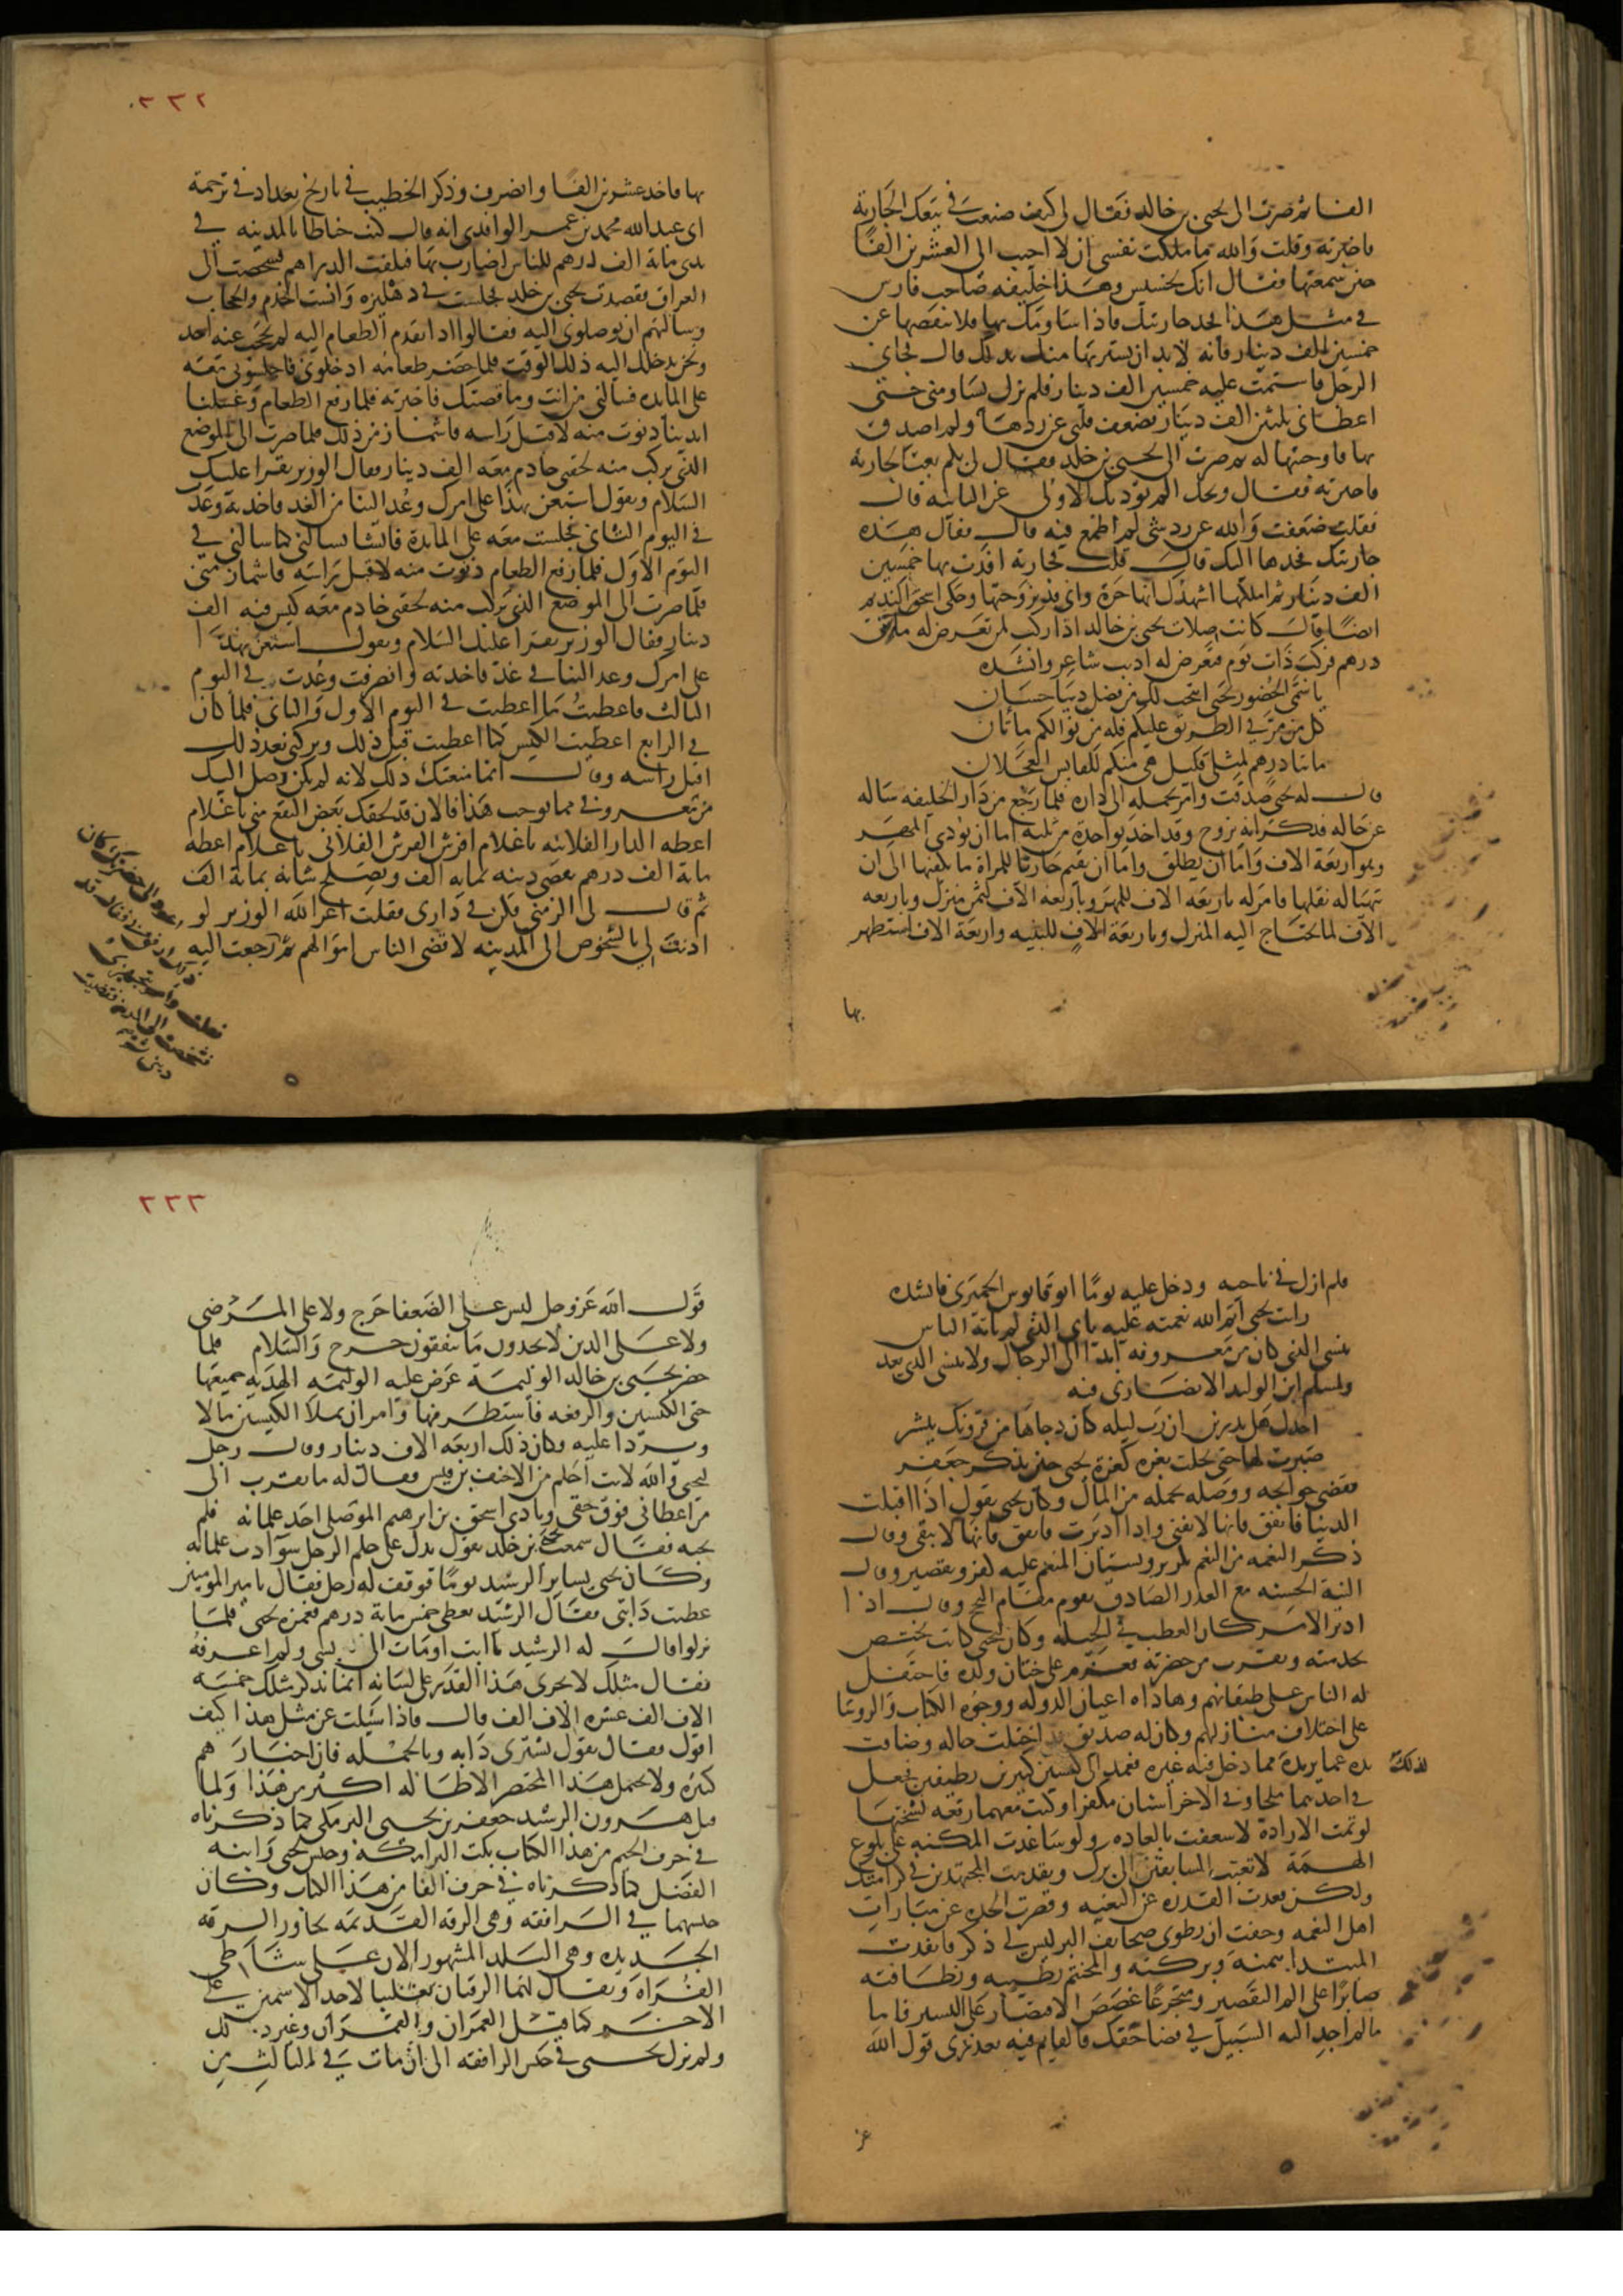 الفا ثم صرت الى يحيى بن خالد فقال لي كيف صنعت في بيعك الجارية
فاخبرته وقلت والله ما ملكت نفسي ان لا اجيب الى العشرين الفا
حين سمعتها فقال انك لخسيس وهذا خليفه صاحب فارس
في مثل هذا فخذ جاريتك فاذا ساومك بها فلا تنقصها عن
خمسين الف دينار فانه لابد ان يشتريها منك بذلك قال فجاني
الرجل فاستمت عليه خمسين الف دينار فلم يزل يساومني حتى
اعطاني ثلثين الف دينار فضعف قلبي عن ردها ولم اصدق
بها فاوجبتها له ثم صرت الى يحيى بن خلد فقال لي بكم بعت الجارية
فاخبرته فقال ويحك الم تؤدبك الاولى عن الثانية قال
فقلت ضعفت والله عن رد شي لم اطمع فيه قال فقال هذه
جاريتك فخذها اليك قال قلت جارية افدت بها خمسين
الف دينار ثم املكها اشهدك انها حرة واني قد تزوجتها وحكى اسحق النديم
ايضا قال كانت صلات يحيى بن خالد اذا ركب لمن تعرض له مائتي
درهم فركب ذات يوم فتعرض له اديب شاعر وانشده
يا سمي الحصور يحيى اتيحت لك من فضل ربنا جنتان
كل من مر في الطريق عليكم فله من نوالكم مائتان
مائتا درهم لمثلي قليل هي منكم للقابس العجلان
قال له يحيى صدقت وامر بحمله الى داره فلما رجع من دار الخليفه ساله
عن حاله فذكر انه تزوج وقد اخذ بواحدة من ثلث اما ان يؤدي المهر
وهو اربعة الاف واما ان يطلق واما ان يقيم جاريا للمراة ما يكفيها الى ان
يتهيا له نقلها فامر له باربعه الاف للمهر وباربعه الاف لثمن منزل وباربعه
الاف لما يحتاج اليه المنزل وباربعة الاف للبنيه واربعة الاف يستظهر
بها
٣٣٢
بها فاخذ عشرين الفا وانصرف وذكر الخطيب في تاريخ بغداد في ترجمة
ابي عبد الله محمد بن عمر الواقدي انه قال كنت حناطا بالمدينه في
يدي مائة الف درهم للناس اضارب بها فتلفت الدراهم فشخصت الى
العراق فقصدت يحيى بن خلد فجلست في دهليزه وانست الخدم والحجاب
وسالتهم ان يوصلوني اليه فقالوا اذا قدم الطعام اليه لم يحجب عنه احد
ونحن ندخلك اليه ذلك الوقت فلما حضر طعامه ادخلوني فاجلسوني معه
على المايده فسالني من انت وما قصتك فاخبرته فلما رفع الطعام وغسلنا
ايدينا دنوت منه لاقبل راسه فاشماز من ذلك فلما صرت الى الموضع
الذي يركب منه لحقني خادم معه الف دينار فقال الوزير يقرا عليك
السلام ويقول استعن بهذا على امرك وعد الينا من الغد فاخذته وعدت
في اليوم الثاني فجلست معه على المايدة فانشا يسالني كما سالني في
اليوم الاول فلما رفع الطعام دنوت منه لاقبل راسه فاشماز مني
فلما صرت الى الموضع الذي يركب منه لحقني خادم معه كيس فيه الف
دينار فقال الوزير يقرا عليك السلام ويقول استعن بهذا
على امرك وعد الينا في غد فاخذته وانصرفت وعدت في اليوم
الثالث فاعطيت مثل ما اعطيت في اليوم الاول والثاني فلما كان
في الرابع اعطيت الكيس كما اعطيت قبل ذلك وتركني بعد ذلك
اقبل راسه وقال انما منعتك ذلك لانه لم يكن وصل اليك
من معروفي مما يوجب هذا فالان قد لحقك بعض النفع مني يا غلام
اعطه الدار الفلانيه يا غلام افرش الفرش الفلاني يا غلام اعطه
ماية الف درهم يقضي دينه بماية الف ويصلح شانه بماية الف
ثم قال لي الزمني وكن في داري فقلت اعز الله الوزير لو
اذنت لي بالشخوص الى المدينه لاقضي الناس اموالهم ثم ارجعت اليه
فلم ازل في ناحيه ودخل عليه يوما ابو قابوس الحميري فانشده
رايت يحيى اتم الله نعمته عليه ياتي الذي لم ياته الناس
ينسى الذي كان من معروفه ابدا الى الرجال ولا ينسى الذي يعد
ولمسلم ابن الوليد الانصاري فيه
اجدك هل تدرين ان رب ليله كان دجاها من قرونك ينشر
صبرت لها حتى تجلت بغرة كغرة يحيى حين يذكر جعفر
فقضى حوايجه ووصله بجمله من المال وكان يحيى يقول اذا اقبلت
الدنيا فانفق فانها لا تفنى واذا ادبرت فانفق فانها لا تبقى وقال
ذكر النعمه من المنعم تكدير ونسيان المنعم عليه كفر وتقصير وقال
النية الحسنه مع العذر الصادق يقوم مقام النجح وقال اذا
ادبر الامر كان العطب في الحيله وكان يحيى كاتب يختص
بخدمته ويقرب من حضرته فعزم على ختان ولده فاحتفل
له الناس على طبقاتهم وهاداه اعيان الدوله ووجوه الكتاب والروسا
على اختلاف منازلهم وكان له صديق قد اختلت حاله وضاقت
يده عما يريده مما دخل فيه غيره فعمد الى كيسين كبيرين نظيفين فجعل
لذلك
في احدهما ملحا وفي الاخر اشنان مكفرا وكتب معهما رقعه نسختها
لو تمت الارادة لاسعفت بالعاده ولو ساعدت المكنه على بلوغ
الهمة لاتعبت السابقين الى برك وتقدمت المجتهدين في كرامتك
ولكن قعدت القدره عن البغيه وقصرت الجده عن مباراة
اهل النعمه وخفت ان تطوى صحايف البر وليس لي ذكر فانفذت
المبتدا بيمنه وبركته والمختتم بطيبه ونظافته
صابرا على الم التقصير ومتجرعا غصص الاقتصار على اليسير فاما
ما لم اجد اليه السبيل في قضا حقك فالقايم فيه بعذري قول الله
عز
٣٣٣
قول الله عز وجل ليس على الضعفا حرج ولا على المرضى
ولا على الذين لا يجدون ما ينفقون حرج والسلام فلما
حضر يحيى بن خالد الوليمة عرض عليه الوليمه الهديه جميعها
حتى الكيسين والرقعه فاستظرفها وامر ان يملا الكيسين مالا
ويردا عليه وكان ذلك اربعه الاف دينار وقال رجل
ليحيى والله لانت احلم من الاحنف بن قيس فقال له ما يقرب الي
من اعطاني فوق حقي ونادى اسحق بن ابرهيم الموصلي احد غلمانه فلم
يجبه فقال سمعت يحيى بن خلد يقول يدل على حلم الرجل سو ادب غلمانه
وكان يحيى يساير الرشيد يوما فوقف له رجل فقال يا امير المومنين
عطبت دابتي فقال الرشيد يعطى خمس ماية درهم فغمزه يحيى فلما
نزلوا قال له الرشيد يا ابت اومات الي بشي ولم اعرفه
فقال مثلك لا يجري هذا القدر على لسانه انما يذكر مثلك خمسه
الاف الف عشره الاف الف قال فاذا سئلت عن مثل هذا كيف
اقول فقال تقول تشترى دابه وبالجمله فان اخبارهم
كثيره ولا يحتمل هذا المختصر الاطالة اكثر من هذا ولما
قتل هرون الرشيد جعفر بن يحيى البرمكي كما ذكرناه
في حرف الجيم من هذا الكتاب نكب البرامكة وحبس يحيى وابنه
الفضل كما ذكرناه في حرف الفا من هذا الكتاب وكان
حبسهما في الرافقه وهي الرقه القديمه تجاور الرقه
الجديده وهي البلد المشهور الان على شاطي
الفراة ويقال لهما الرقتان تغليبا لاحد الاسمين على
الاخر كما قيل العمران والقمران وغير ذلك
ولم يزل يحيى في حبس الرافقه الى ان مات في الثالث من